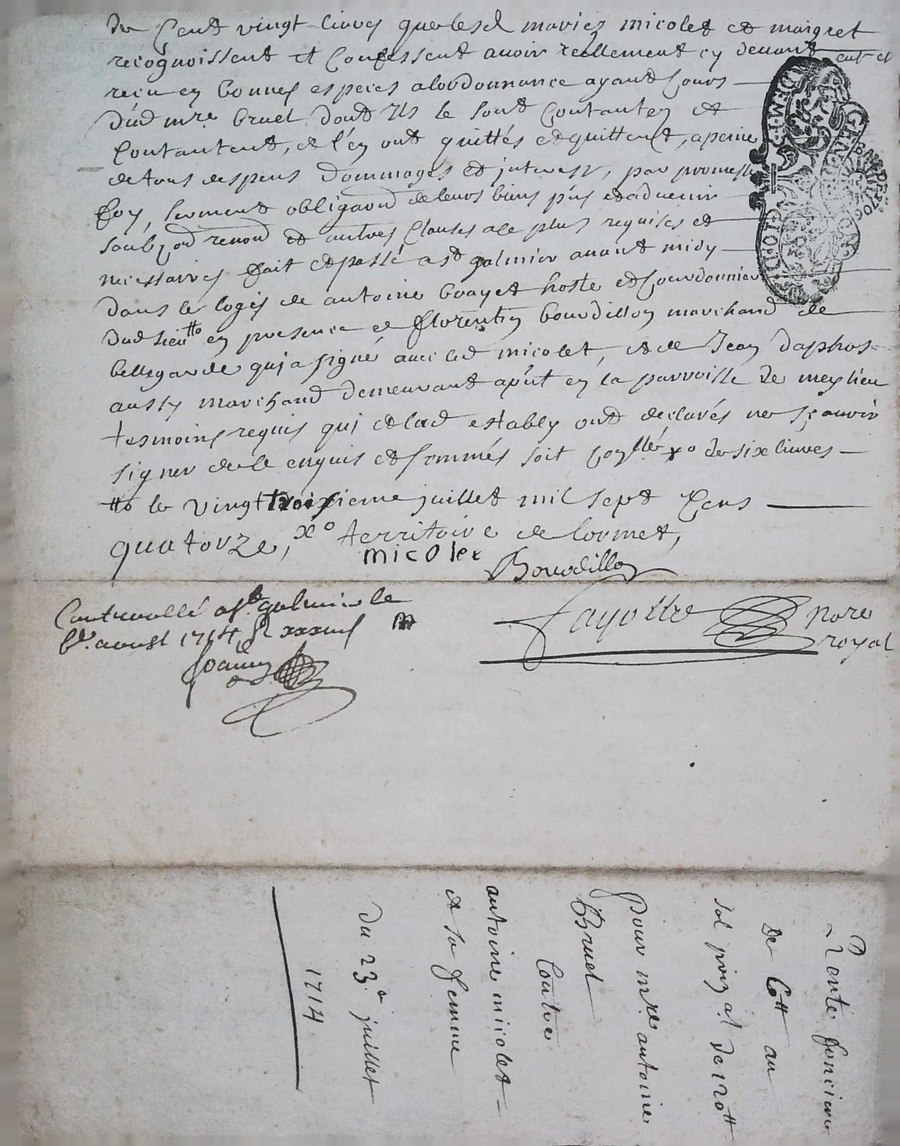 de Cent vingt livres que lesd mariez micolet et margret
recognoissent et Confessent avoir reellement cy devant
receu en bonnes especes a lordonnance ayant Cours
dud mre bruel dont ils le sont Contantez et
Contantent, et l'en ont quittés et quittent, a peine
de tous despens dommages et interest, par promesse
foy, serment obligaon de leurs biens pns et advenir
soubz renon et autres Clauses a ce plus requises et
necessaires fait et passé a st galmier avant midy
dans le logis de antoine hoste et Courdonnier
dud lieu en presence de florentin bourdillon marchand de
bellegarde qui a signé avec led micolet, et de Jean daphos
aussy marchand demeurant en la parroisse de meylieu
tesmoins requis qui et lad estably ont declarés ne sçavoir
signer de ce enquis et sommés soit de six livres
tt le vingt troixieme juillet mil sept Cens
quatorze, xo territoire de Cormet,
micolet
Bourdillon
Controollé a st galmier le
aoust 1714
fayolle
nore
royal
GENERALITE DE LION
Rente fonciere
de 6tt au
sol prix al de 120tt
pour mre antoine
Bruel
Contre
antoine micolet
et sa femme
du 23e juillet
1714